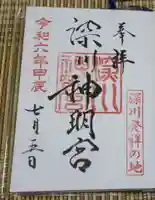 奉拝
深川発祥の地
深川神明宮
令和六年甲辰
七月五日